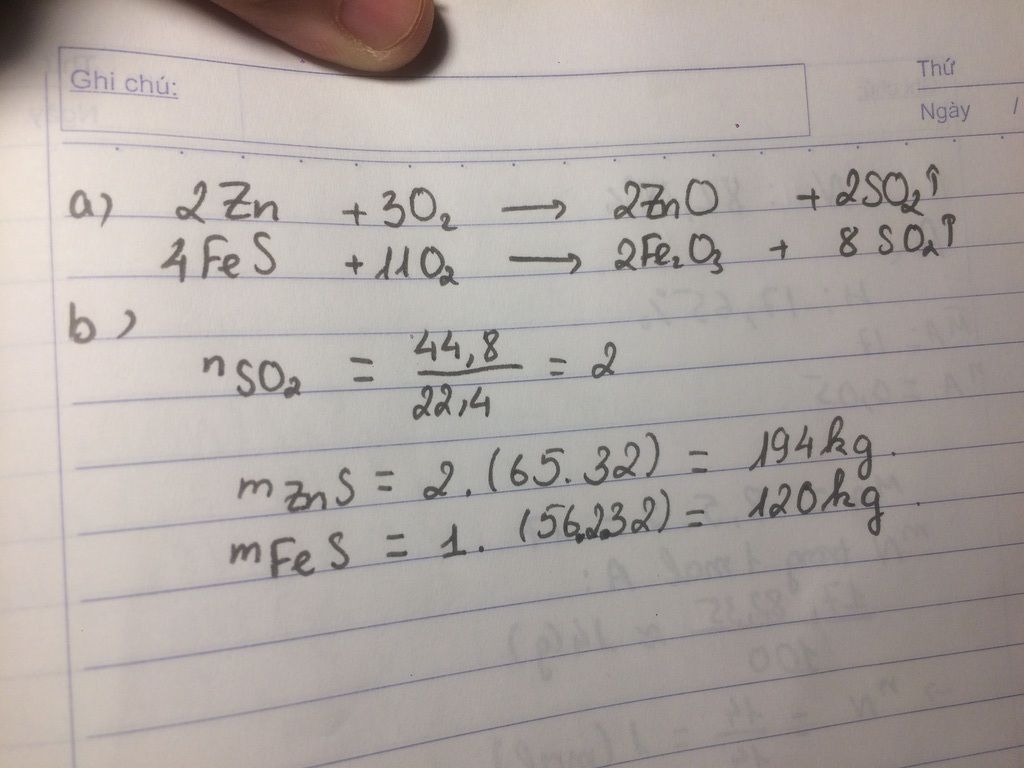 Ghi chú:
Thứ
Ngày /
a) 2Zn + 3O₂ → 2ZnO + 2SO₂↑
4FeS + 11O₂ → 2Fe₂O₃ + 8SO₂↑
b)
nSO₂ = 44,8/22,4 = 2
mZnS = 2.(65.32) = 194kg.
mFeS = 1.(56.2.32) = 120kg